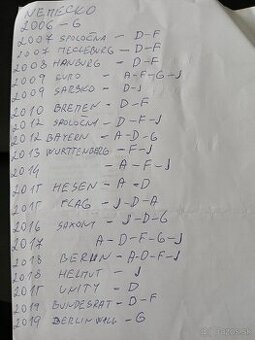 NEMECKO
2006 - G
2007 SPOLOČNÁ - D-F
2007 MECLEBURG - D-F
2008 HAMBURG - D-F
2009 EURO - A-F-G-J
2009 SARSKO - D-J
2010 BREMEN - D-F
2012 SPOLOČNÁ - D-F-J
2012 BAYERN - A-D-G
2013 WURTTENBERG - F-J
2014 - A-F-J
2015 HESEN - A-D
2015 FLAG - J-D-A
2016 SAXONY - J-D-G
2017 A-D-F-G-J
2018 BERLIN - A-D-F-J
2018 HELMUT - J
2015 UNITY - D
2019 BUNDESRAT - D-F
2019 BERLIN WALL - G
bazos.sk